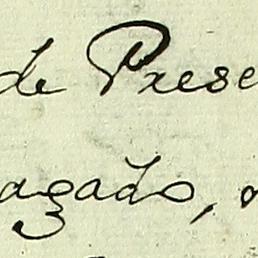 de Prese
agado,